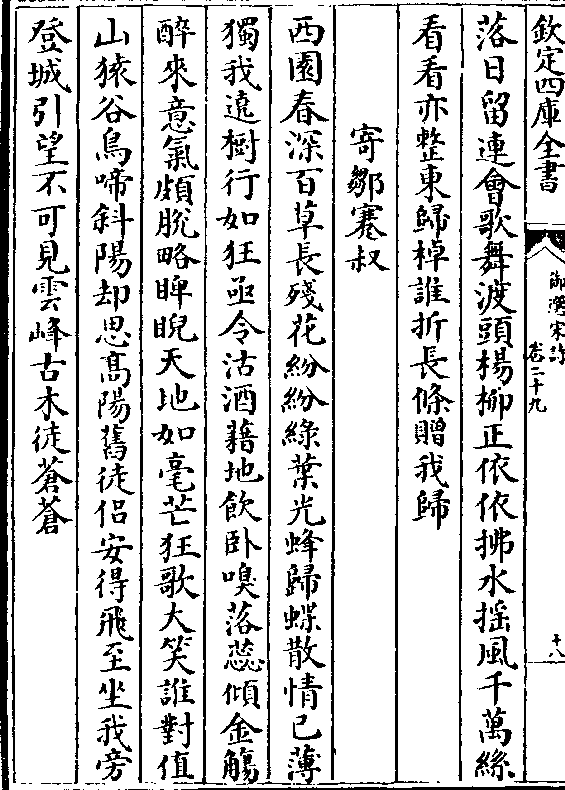 欽定四庫全書
御選宋詩
卷二十九
十八
落日留連會歌舞渡頭楊柳正依依拂水揺風千萬絲
看看亦整東歸棹誰折長條贈我歸
寄鄒蹇叔
西園春深百草長殘花紛紛綠葉光蜂歸蝶散情已薄
獨我遶樹行如狂亟令沽酒藉地飲卧嗅落蕊傾金觴
醉來意氣頗脫略睥睨天地如毫芒狂歌大笑誰對值
山猿谷鳥啼斜陽却思髙陽舊徒侶安得飛至坐我旁
登城引望不可見雲峰古木徒蒼蒼